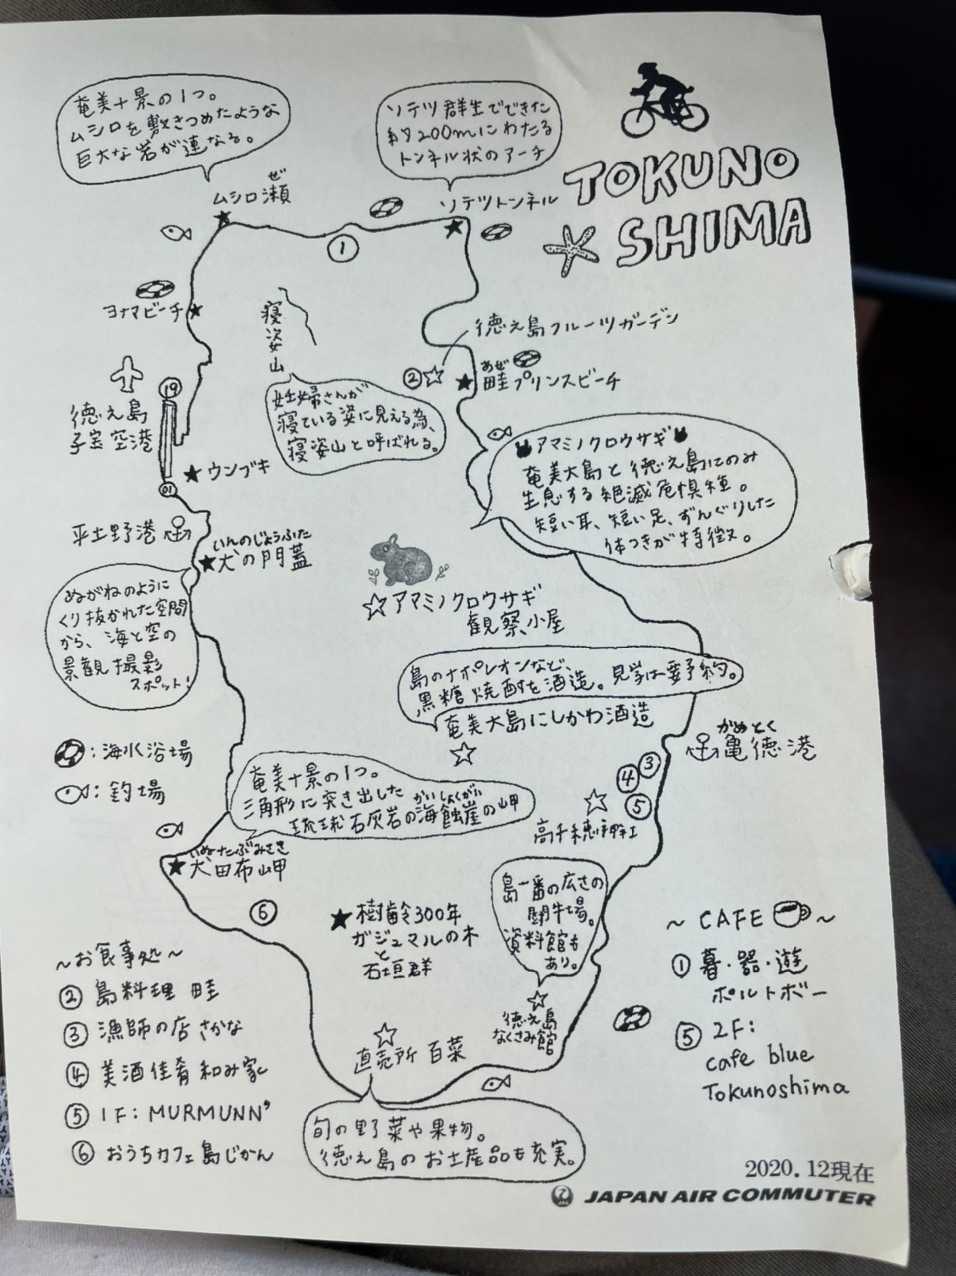 奄美十景の1つ。
ムシロを敷きつめたような
巨大な岩が連なる。
ソテツ群生でできた
約200mにわたる
トンネル状のアーチ
TOKUNO
SHIMA
ぜ
ムシロ瀬
ソテツトンネル
①
ヨナマビーチ
寝姿山
徳之島フルーツガーデン
②
あぜ
畦プリンスビーチ
妊婦さんが
寝ている姿に見える為、
寝姿山と呼ばれる。
19
徳之島
子宝空港
01
ウンブキ
アマミノクロウサギ
奄美大島と徳之島にのみ
生息する絶滅危惧種。
短い耳、短い足、ずんぐりした
体つきが特徴。
平土野港
いんのじょうふた
犬の門蓋
めがねのように
くり抜かれた空間
から、海と空の
景観撮影
スポット!
アマミノクロウサギ
観察小屋
島のナポレオンなど、
黒糖焼酎を酒造。見学は要予約。
奄美大島にしかわ酒造
かめとく
亀徳港
:海水浴場
:釣場
③
④
⑤
高千穂神社
奄美十景の1つ。
三角形に突き出した
かいしょくがい
琉球石灰岩の海蝕崖の岬
いぬたぶみさき
犬田布岬
⑥
樹齢300年
ガジュマルの木
と
石垣群
島一番の広さの
闘牛場。
資料館も
あり。
徳之島
なくさみ館
直売所 百菜
旬の野菜や果物。
徳之島のお土産品も充実。
~お食事処~
② 島料理 畦
③ 漁師の店 さかな
④ 美酒佳肴 和み家
⑤ 1F: MURMUNN'
⑥ おうちカフェ 島じかん
~ CAFE ~
① 暮・器・遊
ポルトボー
⑤ 2F:
cafe blue
Tokunoshima
2020.12現在
JAPAN AIR COMMUTER